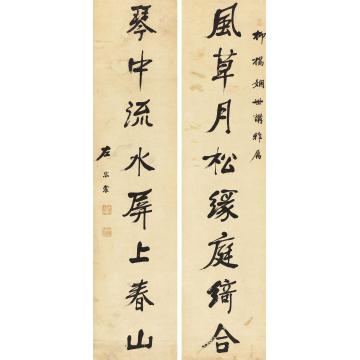 柳桥姻世讲雅属
風草月松缘庭綺合
琴中流水屏上春山
左宗棠